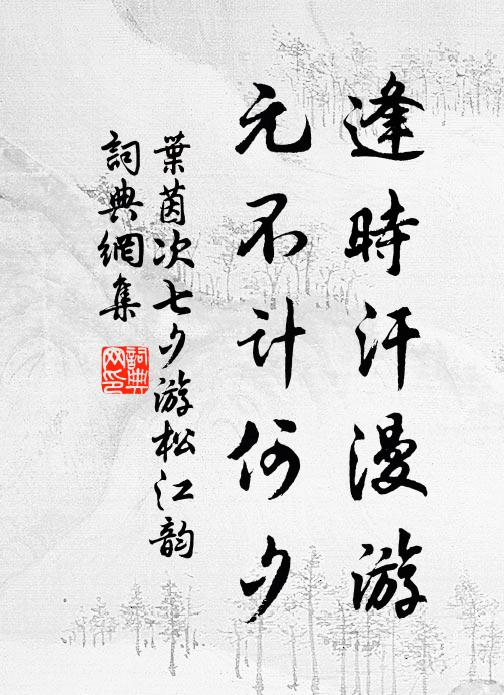 逢時汗漫游
元不计何夕
葉茵次七夕游松江韵
詞典網集
詞典网印